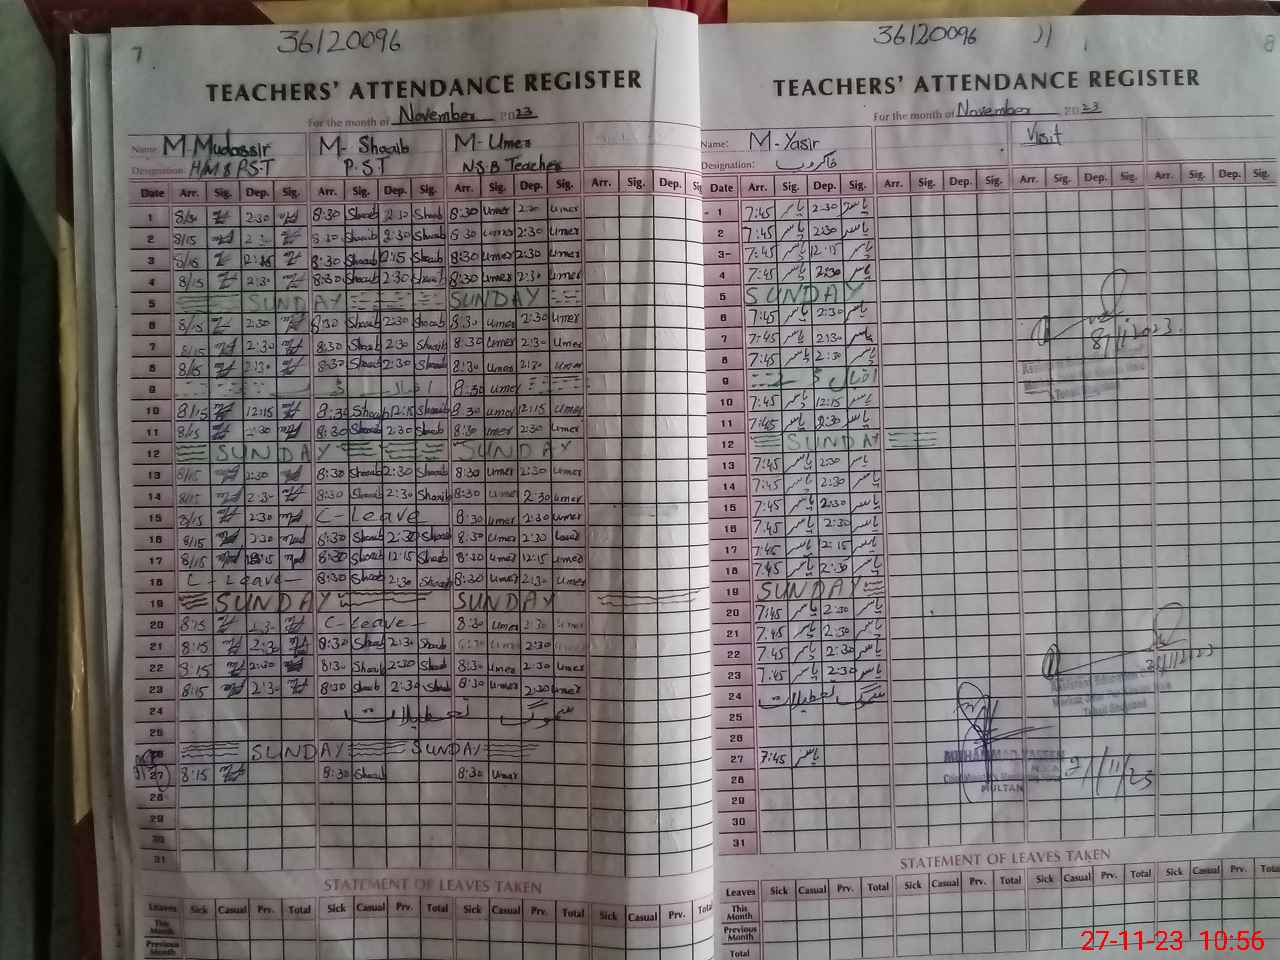 7
36120096
TEACHERS' ATTENDANCE REGISTER
For the month of November 2023
Name: M. Mudassir M- Shoaib M- Umer
Designation: H/M & P.S.T P.S.T N.S.B Teacher
Date Arr. Sig. Dep. Sig. Arr. Sig. Dep. Sig. Arr. Sig. Dep. Sig. Arr. Sig. Dep.
1 8/30 2:30 8:30 Shoaib 2:30 Shoaib 8:30 Umer 2:30 Umer
2 8/15 8:30 Shoaib 2:30 Shoaib 8:30 Umer 2:30 Umer
3 8/15 8:30 Shoaib Shoaib 8:30 Umer 2:30 Umer
4 8/15 2:30 8:30 Shoaib 2:30 8:30 Umer 2:30 Umer
5 SUNDAY SUNDAY
6 8/15 2:30 8:30 Shoaib 2:30 Shoaib 8:30 Umer 2:30 Umer
7 8/15 2:30 8:30 Shoaib 2:30 Shoaib 8:30 Umer 2:30 Umer
8 8/15 2:30 8:30 Shoaib 2:30 Shoaib 8:30 Umer 2:30 Umer
9 8:30 Umer
10 8/15 12:15 8:30 Shoaib 12:15 Shoaib 8:30 Umer 12:15 Umer
11 8/15 2:30 8:30 Shoaib 2:30 Shoaib 8:30 Umer 2:30 Umer
12 SUNDAY SUNDAY
13 8/15 2:30 8:30 Shoaib 2:30 Shoaib 8:30 Umer 2:30 Umer
14 8/15 2:30 8:30 Shoaib 2:30 Shoaib 8:30 Umer 2:30 Umer
15 8/15 2:30 C-Leave 8:30 Umer 2:30 Umer
16 8/15 2:30 8:30 Shoaib 2:30 Shoaib 8:30 Umer 2:30
17 8/15 8:30 Shoaib 12:15 Shoaib 8:30 Umer 12:15 Umer
18 C-Leave- 8:30 Shoaib 2:30 Shoaib 8:30 Umer 2:30 Umer
19 SUNDAY SUNDAY
20 8:15 C-Leave- 8:30 Umer 2:30 Umer
21 8:15 2:30 8:30 Shoaib 2:30 Shoaib 2:30
22 8:15 2:30 8:30 Shoaib 2:30 Shoaib 8:30 Umer 2:30 Umer
23 8:15 2:30 8:30 Shoaib 2:30 Shoaib 8:30 Umer 2:30 Umer
24 سموگ تعطیلات
25
26 SUNDAY SUNDAY
27 8:15 8:30 Shoaib 8:30 Umer
28
29
30
31
STATEMENT OF LEAVES TAKEN
Leaves Sick Casual Prv. Total Sick Casual Prv. Total Sick Casual Prv. Total Sick Casual Prv. Total
This Month
Previous Month
8
36120096
TEACHERS' ATTENDANCE REGISTER
For the month of November 2023
Name: M-Yasir Visit
Designation: خاکروب
Date Arr. Sig. Dep. Sig. Arr. Sig. Dep. Sig. Arr. Sig. Dep. Sig. Arr. Sig. Dep. Sig.
1 7:45 یاسر 2:30 یاسر
2 7:45 یاسر 2:30 یاسر
3 7:45 یاسر 12:15 یاسر
4 7:45 یاسر 2:30 یاسر
5 SUNDAY
6 7:45 یاسر 2:30 یاسر
7 7:45 یاسر 2:30 یاسر
8 7:45 یاسر 2:30 یاسر
8/11/2023
9 اقبال ڈے
10 7:45 یاسر 12:15 یاسر
11 7:45 یاسر 2:30 یاسر
12 SUNDAY
13 7:45 یاسر 2:30 یاسر
14 7:45 یاسر 2:30 یاسر
15 7:45 یاسر 2:30 یاسر
16 7:45 یاسر 2:30 یاسر
17 7:45 یاسر 2:15 یاسر
18 7:45 یاسر 2:30 یاسر
19 SUNDAY
20 7:45 یاسر 2:30 یاسر
21 7:45 یاسر 2:30 یاسر
22 7:45 یاسر 2:30 یاسر
23 7:45 یاسر 2:30 یاسر
24 سموگ تعطیلات
25
26
27 7:45 یاسر
MULTAN
28
29
30
31
STATEMENT OF LEAVES TAKEN
Leaves Sick Casual Prv. Total Sick Casual Prv. Total Sick Casual Prv. Total Sick Casual Prv. Total
This Month
Previous Month
Total
27-11-23 10:56